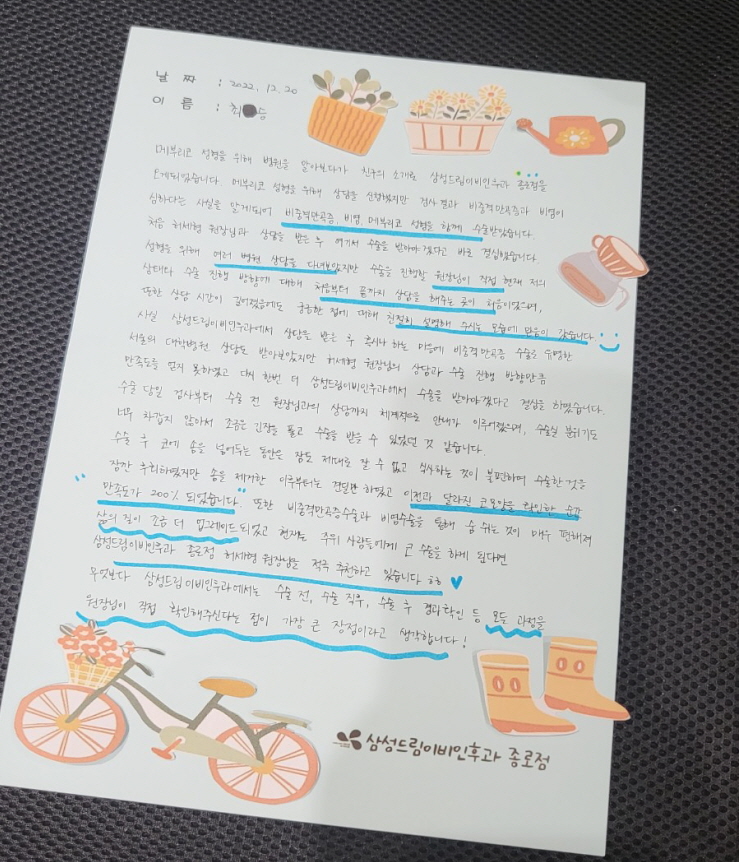 날 짜 : 2022. 12. 20
이 름 : 최 승
메부리코 성형을 위해 병원을 알아보다가 친구의 소개로 삼성드림이비인후과 종로점을
오게되었습니다. 메부리코 성형을 위해 상담을 신청했지만 검사 결과 비중격만곡증과 비염이
심하다는 사실을 알게되어 비중격만곡증, 비염, 메부리코 성형을 함께 수술받았습니다.
처음 허세형 원장님과 상담을 받은 후 여기서 수술을 받아야겠다고 바로 결심했습니다.
성형을 위해 여러 병원 상담을 다녀보았지만 수술을 진행할 원장님이 직접 현재 저의
상태와 수술 진행 방향에 대해 처음부터 끝까지 상담을 해주는 곳이 처음이었으며,
또한 상담 시간이 길어졌음에도 궁금한 점에 대해 친절히 설명해 주시는 모습에 믿음이 갔습니다.
사실 삼성드림이비인후과에서 상담을 받은 후 혹시나 하는 마음에 비중격만곡증 수술로 유명한
서울의 대학병원 상담도 받아보았지만 허세형 원장님의 상담과 수술 진행 방향만큼
만족도를 얻지 못하였고 다시 한번 더 삼성드림이비인후과에서 수술을 받아야겠다고 결심을 하였습니다.
수술 당일 검사부터 수술 전 원장님과의 상담까지 체계적으로 안내가 이루어졌으며, 수술실 분위기도
너무 차갑지 않아서 조금은 긴장을 풀고 수술을 받을 수 있었던 것 같습니다.
수술 후 코에 솜을 넣어두는 동안은 잠도 제대로 잘 수 없고 식사하는 것이 불편하여 수술한 것을
잠깐 후회하였지만 솜을 제거한 이후부터는 견딜만 하였고 이전과 달라진 코모양을 확인한 순간
만족도가 200% 되었습니다. 또한 비중격만곡증수술과 비염수술을 통해 숨 쉬는 것이 매우 편해져
삶의 질이 조금 더 업그레이드 되었고 현재는 주위 사람들에게 코 수술을 하게 된다면
삼성드림이비인후과 종로점 허세형 원장님을 적극 추천하고 있습니다 ㅎㅎ
무엇보다 삼성드림이비인후과에서는 수술 전, 수술 직후, 수술 후 결과확인 등 모든 과정을
원장님이 직접 확인해주신다는 점이 가장 큰 장점이라고 생각합니다!
삼성드림이비인후과 종로점